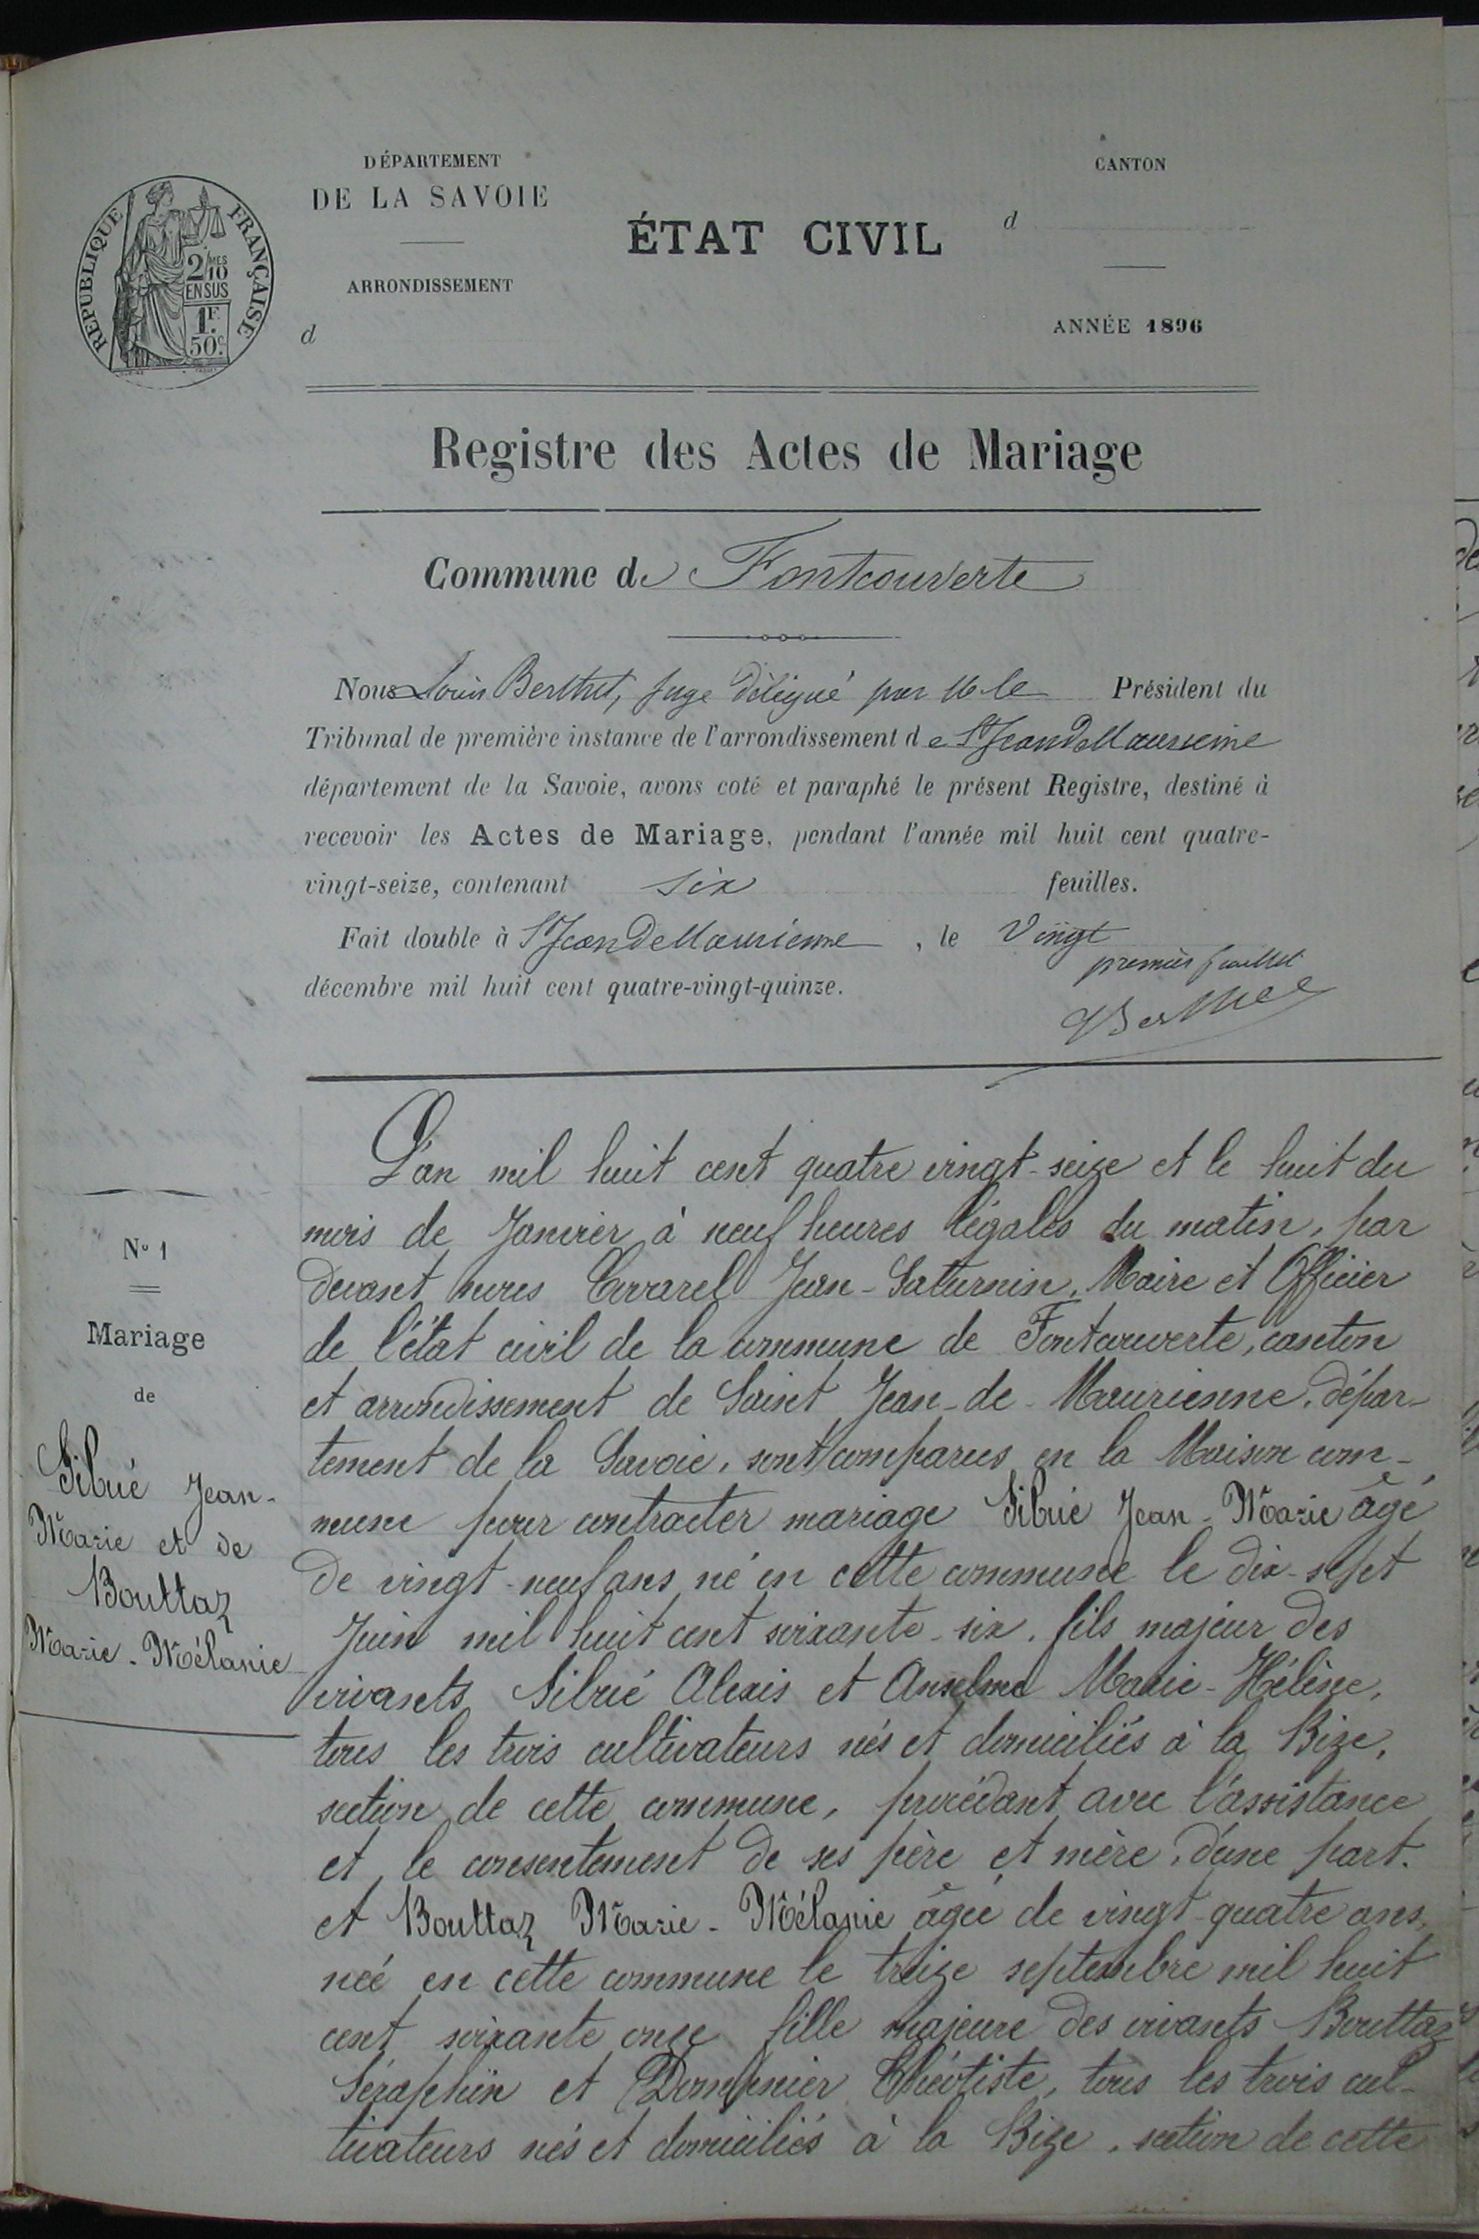 DÉPARTEMENT
DE LA SAVOIE
ARRONDISSEMENT
d
RÉPUBLIQUE FRANÇAISE
2/10MES
EN SUS
1F.
50c.
ÉTAT CIVIL
CANTON
d
ANNÉE 1896
Registre des Actes de Mariage
Commune de Fontcouverte
Nous Louis Berthet, juge délégué par M le Président du
Tribunal de première instance de l'arrondissement de St Jean de Maurienne
département de la Savoie, avons coté et paraphé le présent Registre, destiné à
recevoir les Actes de Mariage, pendant l'année mil huit cent quatre-
vingt-seize, contenant six feuilles.
Fait double à St Jean de Maurienne, le Vingt
décembre mil huit cent quatre-vingt-quinze.
premier feuillet
Berthet
N° 1
Mariage
de
Sibué Jean-
Marie et de
Bouttaz
Marie-Mélanie
L'an mil huit cent quatre vingt-seize et le huit du
mois de Janvier à neuf heures légales du matin, par
devant nous Covarel Jean-Saturnin, Maire et Officier
de l'état civil de la commune de Fontcouverte, canton
et arrondissement de Saint Jean-de-Maurienne, dépar-
tement de la Savoie, sont comparus en la Maison com-
mune pour contracter mariage Sibué Jean-Marie âgé
de vingt-neuf ans né en cette commune le dix-sept
Juin mil huit cent soixante-six, fils majeur des
vivants Sibué Alexis et Anselme Marie-Hélène,
tous les trois cultivateurs nés et domiciliés à la Bize,
section de cette commune, procédant avec l'assistance
et le consentement de ses père et mère, d'une part.
et Bouttaz Marie-Mélanie âgée de vingt-quatre ans,
née en cette commune le treize septembre mil huit
cent soixante onze fille majeure des vivants Bouttaz
Séraphin et Dompnier Théotiste, tous les trois cul-
tivateurs nés et domiciliés à la Bize, section de cette